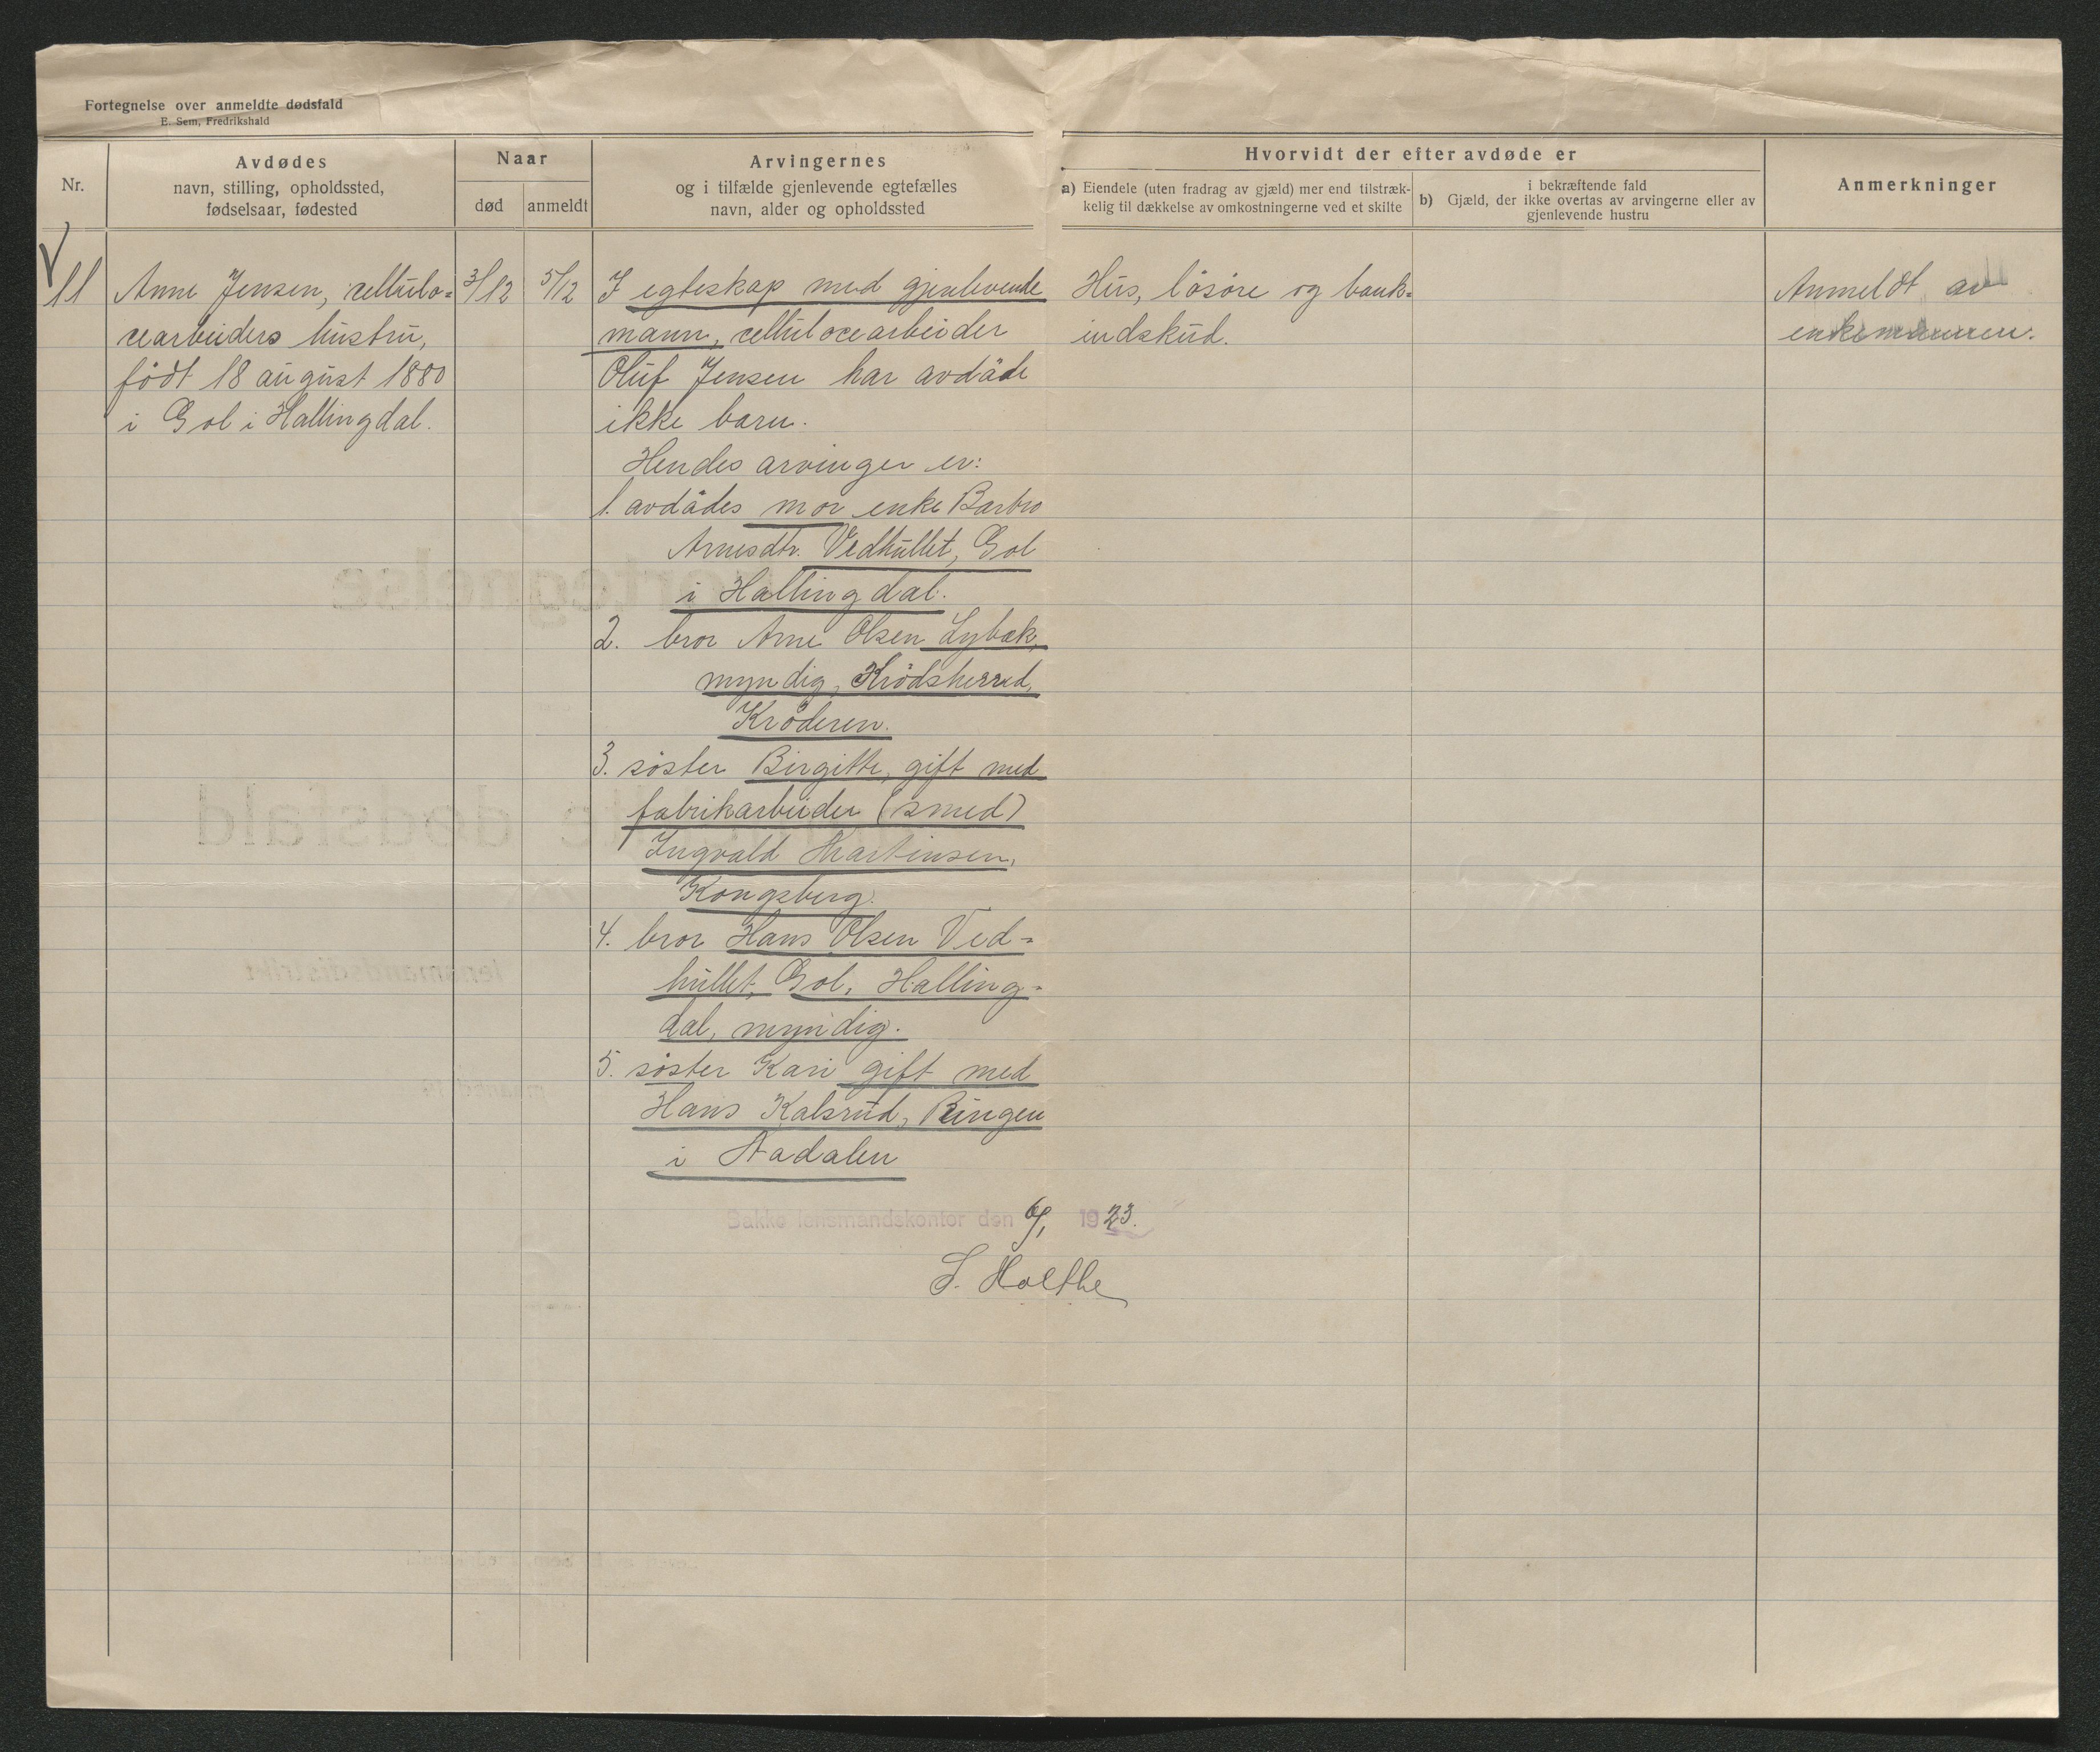 Fortegnelse over anmeldte dødsfald
E. Sem, Fredrikshald
Nr.
Avdødes
navn, stilling, opholdssted,
fødselsaar, fødested
Naar
død
anmeldt
Arvingernes
og i tilfælde gjenlevende egtefælles
navn, alder og opholdssted
Hvorvidt der efter avdøde er
a) Eiendele (uten fradrag av gjæld) mer end tilstræk-
kelig til dækkelse av omkostningerne ved et skifte
i bekræftende fald
b) Gjæld, der ikke overtas av arvingerne eller av
gjenlevende hustru
Anmerkninger
11
Anne Jensen, cellulo=
cearbeiders hustru,
födt 18 august 1880
i Gol i Hallingdal.
3/12
5/12
I egteskap med gjenlevende
mann, cellulocearbeider
Oluf Jensen har avdöde
ikke barn.
Hendes arvinger er:
1. avdödes mor enke Barbro
Arnesdtr. Vedhullet, Gol
i Hallingdal.
2. bror Arne Olsen Lybæk,
myndig, Krödsherred,
Kröderen.
3. söster Birgitte, gift med
fabrikarbeider (smed)
Ingvald Martinsen,
Kongsberg.
4. bror Hans Olsen Ved=
hullet, Gol, Halling=
dal, myndig.
5. söster Kari gift med
Hans Kalsrud, Ringen
i Aadalen
Hus, lösöre og bank=
indskud.
Anmeldt av
enkemannen.
Bakke lensmandskontor den 1923.
S. Holthe